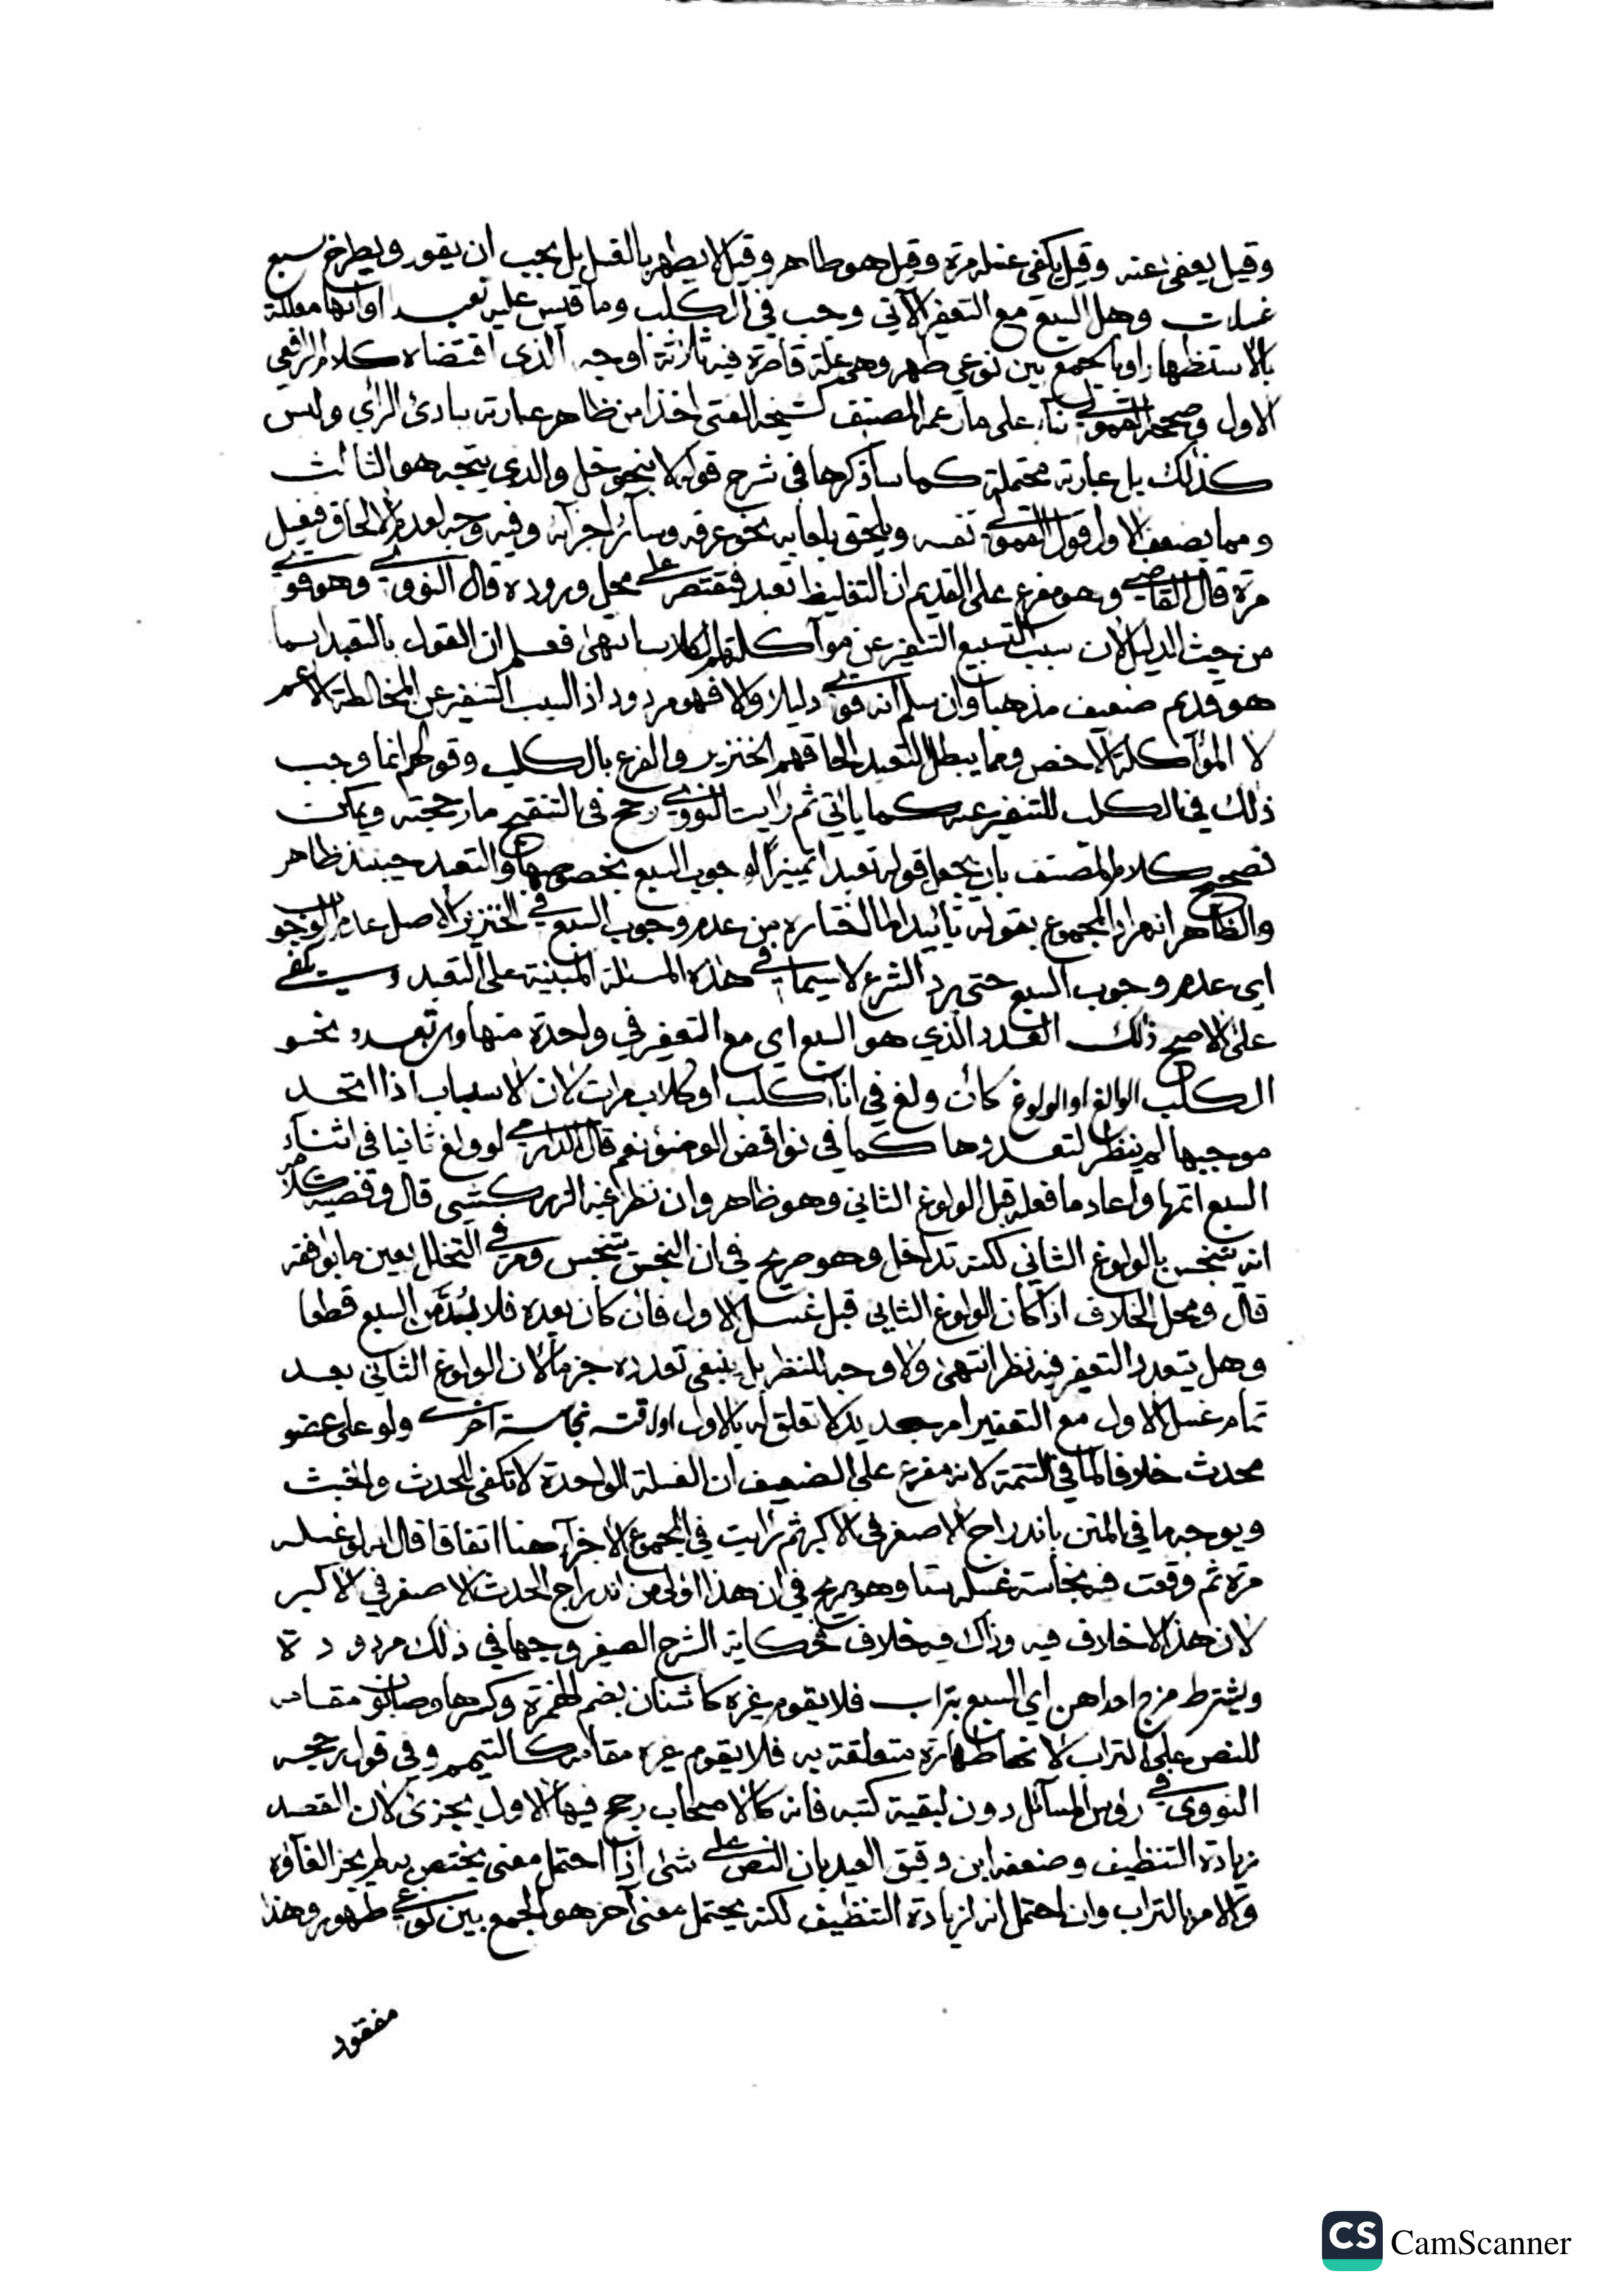 وقيل يعفى عنه وقيل يكفي غسله مرة وقيل هو طاهر وقيل لا يطهر بالغسل بل يجب ان يقور ويطرح سبع
غسلات وهل السبع مع التعفير الآتي وجب في الكلب وما قيس عليه تعبد او انها معللة
بالاستظهار او بالجمع بين نوعي طهر وهي علة قاصرة فيه ثلاثة اوجه الذي اقتضاه كلام الرافعي
الاول وصححه القمولي بناء على ما زعمه المصنف كشيخه الفتى اخذا من ظاهر عبارته ببادئ الرأي وليس
كذلك بل عبارته محتملة كما ساذكرها في شرح قوله لا بنحو خل والذي يتجه هو الثالث
ومما يضعف الاول قول القمولي نفسه ويلحق بلعابه نحو عرقه وسائر اجزائه وفيه وجه لعدم الالحاق فيغسل
مرة قال القاضي وهو مفرع على القديم ان التغليظ تعبد فيقتصر على محل وروده قال النووي وهو قوي
من حيث الدليل لان سبب التسبيع التنفير عن مواكلتهم الكلاب انتهى فعلم ان القول بالتعبد انما
هو قديم ضعيف مذهبا وان سلم انه قوي دليلا والا فهو مردود اذ السبب التنفير عن المخالطة الاعم
لا المؤاكلة الاخص ومما يبطل التعبد الحاقهم الخنزير والفرع بالكلب وقولهم انما وجب
ذلك في الكلب للتنفير عنه كما ياتي ثم رايت النووي رجح في التنقيح ما رجحته ويمكن
تصحيح كلام المصنف بان يجعل قوله تعبدا تمييزا لوجوب السبع بخصوصها والتعبد حينئذ ظاهر
والظاهر انه اراد المجموع بقوله تأييدا لما اختاره من عدم وجوب السبع في الخنزير الاصل عدم الوجوب
اي عدم وجوب السبع حتى يرد الشرع لا سيما في هذه المسئلة المبنية على التعبد ويكتفي
على الاصح ذلك العدد الذي هو السبع اي مع التعفير في واحدة منها وان تعدد نحو
الكلب الوالغ او الولوغ كأن ولغ في اناء كلب او كلاب مرات لان الاسباب اذا اتحد
موجبها لم ينظر لتعددها كما في نواقض الوضوء نعم قال الدارمي لو ولغ ثانيا في اثناء
السبع اتمها واعاد ما فعله قبل الولوغ الثاني وهو ظاهر وان نظر فيه الزركشي قال وقضية كلامهم
انه تنجس بالولوغ الثاني لكنه تداخل وهو صريح في ان النجس يتنجس ومر في التخلل بعين ما يوافقه
قال ومحل الخلاف اذا كان الولوغ الثاني قبل غسل الاول فان كان بعده فلا بُدَّ من السبع قطعا
وهل يتعدد التعفير فيه نظر انتهى ولا وجه للنظر بل ينبغي تعدده جزما لان الولوغ الثاني بعد
تمام غسل الاول مع التعفير امر جديد لا تعلق له بالاول او لاقته نجاسة اخرى ولو على عضو
محدث خلافا لما في التتمة لانه مفرع على الضعيف ان الغسلة الواحدة لا تكفي للحدث والخبث
ويوجه ما في المتن باندراج الاصغر في الاكبر ثم رايت في المجموع الاجزاء هنا اتفاقا قال لو غسله
مرة ثم وقعت فيه نجاسة غسله ستا وهو صريح في ان هذا اولى من اندراج الحدث الاصغر في الاكبر
لان هذا لا خلاف فيه وذاك فيه خلاف فحكاية الشرح الصغير وجها في ذلك مردودة
ويشترط مزج احداهن اي السبع بتراب فلا يقوم غيره كاشنان بضم الهمزة وكسرها وصابون مقامه
للنص على التراب لانها طهارة متعلقة به فلا يقوم غيره مقامه كالتيمم وفي قول رجحه
النووي في رؤوس المسائل دون لبقية كتبه فانه كالاصحاب رجح فيها الاول يجزئ لان القصد
زيادة التنظيف وضعفه ابن دقيق العيد بان النص على شئ اذا احتمل معنى يختص به لم يجز الغاؤه
والامر بالتراب وان احتمل انه لزيادة التنظيف لكنه يحتمل معنى آخر هو الجمع بين نوعي طهور وهذا
مفقود
CS CamScanner